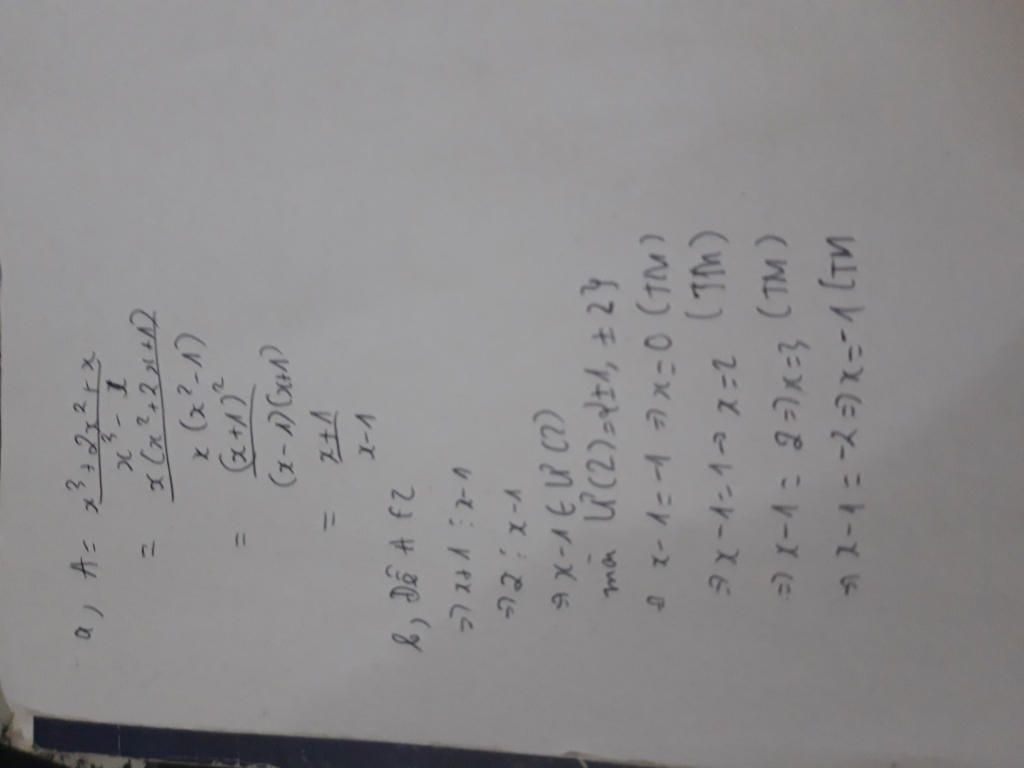 a, A = x³ + 2x² + x / x³ - x
= x(x² + 2x + 1) / x(x² - 1)
= (x+1)² / (x-1)(x+1)
= x+1 / x-1
b, Để A ∈ Z
=> x+1 ⋮ x-1
=> 2 ⋮ x-1
=> x-1 ∈ Ư(2)
mà Ư(2) = {±1, ±2}
x-1 = -1 => x = 0 (TM)
=> x-1 = 1 -> x = 2 (TM)
=> x-1 = 2 => x = 3 (TM)
=> x-1 = -2 => x = -1 (TM